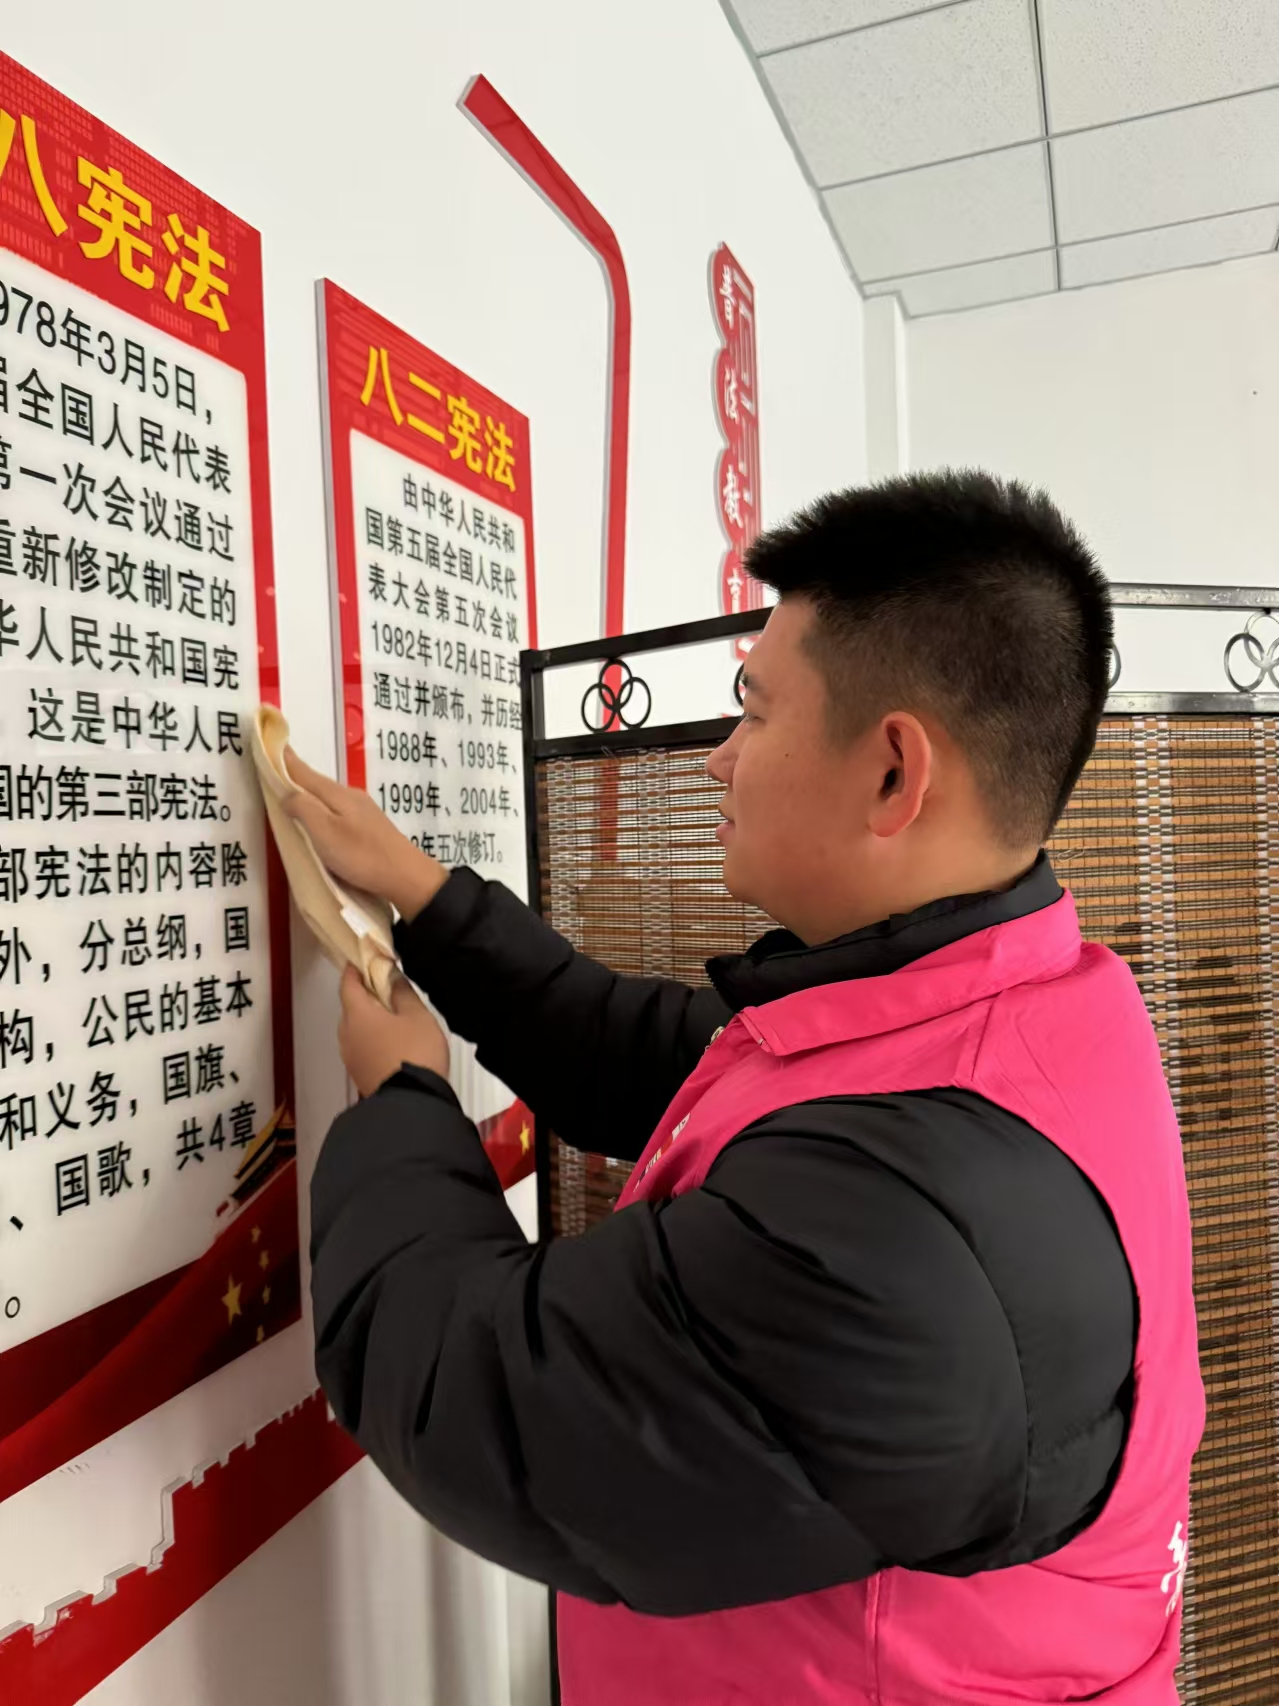 八宪法
978年3月5日，
届全国人民代表
第一次会议通过
重新修改制定的
华人民共和国宪
这是中华人民
国的第三部宪法。
部宪法的内容除
外，分总纲，国
构，公民的基本
和义务，国旗、
、国歌，共4章
。
八二宪法
由中华人民共和
国第五届全国人民代
表大会第五次会议
1982年12月4日正式
通过并颁布，并历经
1988年、1993年、
1999年、2004年、
年五次修订。
普法教育